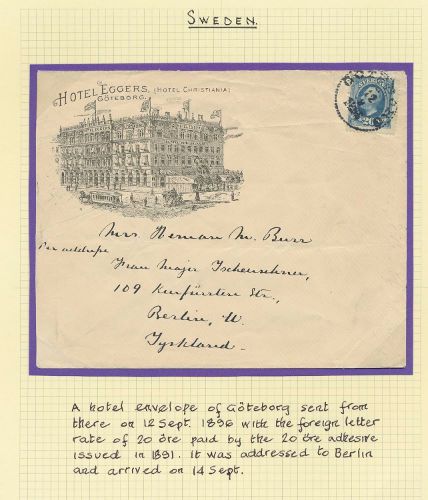 SWEDEN.
HOTEL EGGERS, (HOTEL CHRISTIANIA)
GÖTEBORG.
SVERIGE
20
Mrs Herman M. Burr
Per address
Frau Major Tscheuschner,
109 Kurfürsten Str.,
Berlin, W.
Tyskland.
A hotel envelope of Göteborg sent from
there on 12 Sept. 1896 with the foreign letter
rate of 20 öre paid by the 20 öre adhesive
issued in 1891. It was addressed to Berlin
and arrived on 14 Sept.